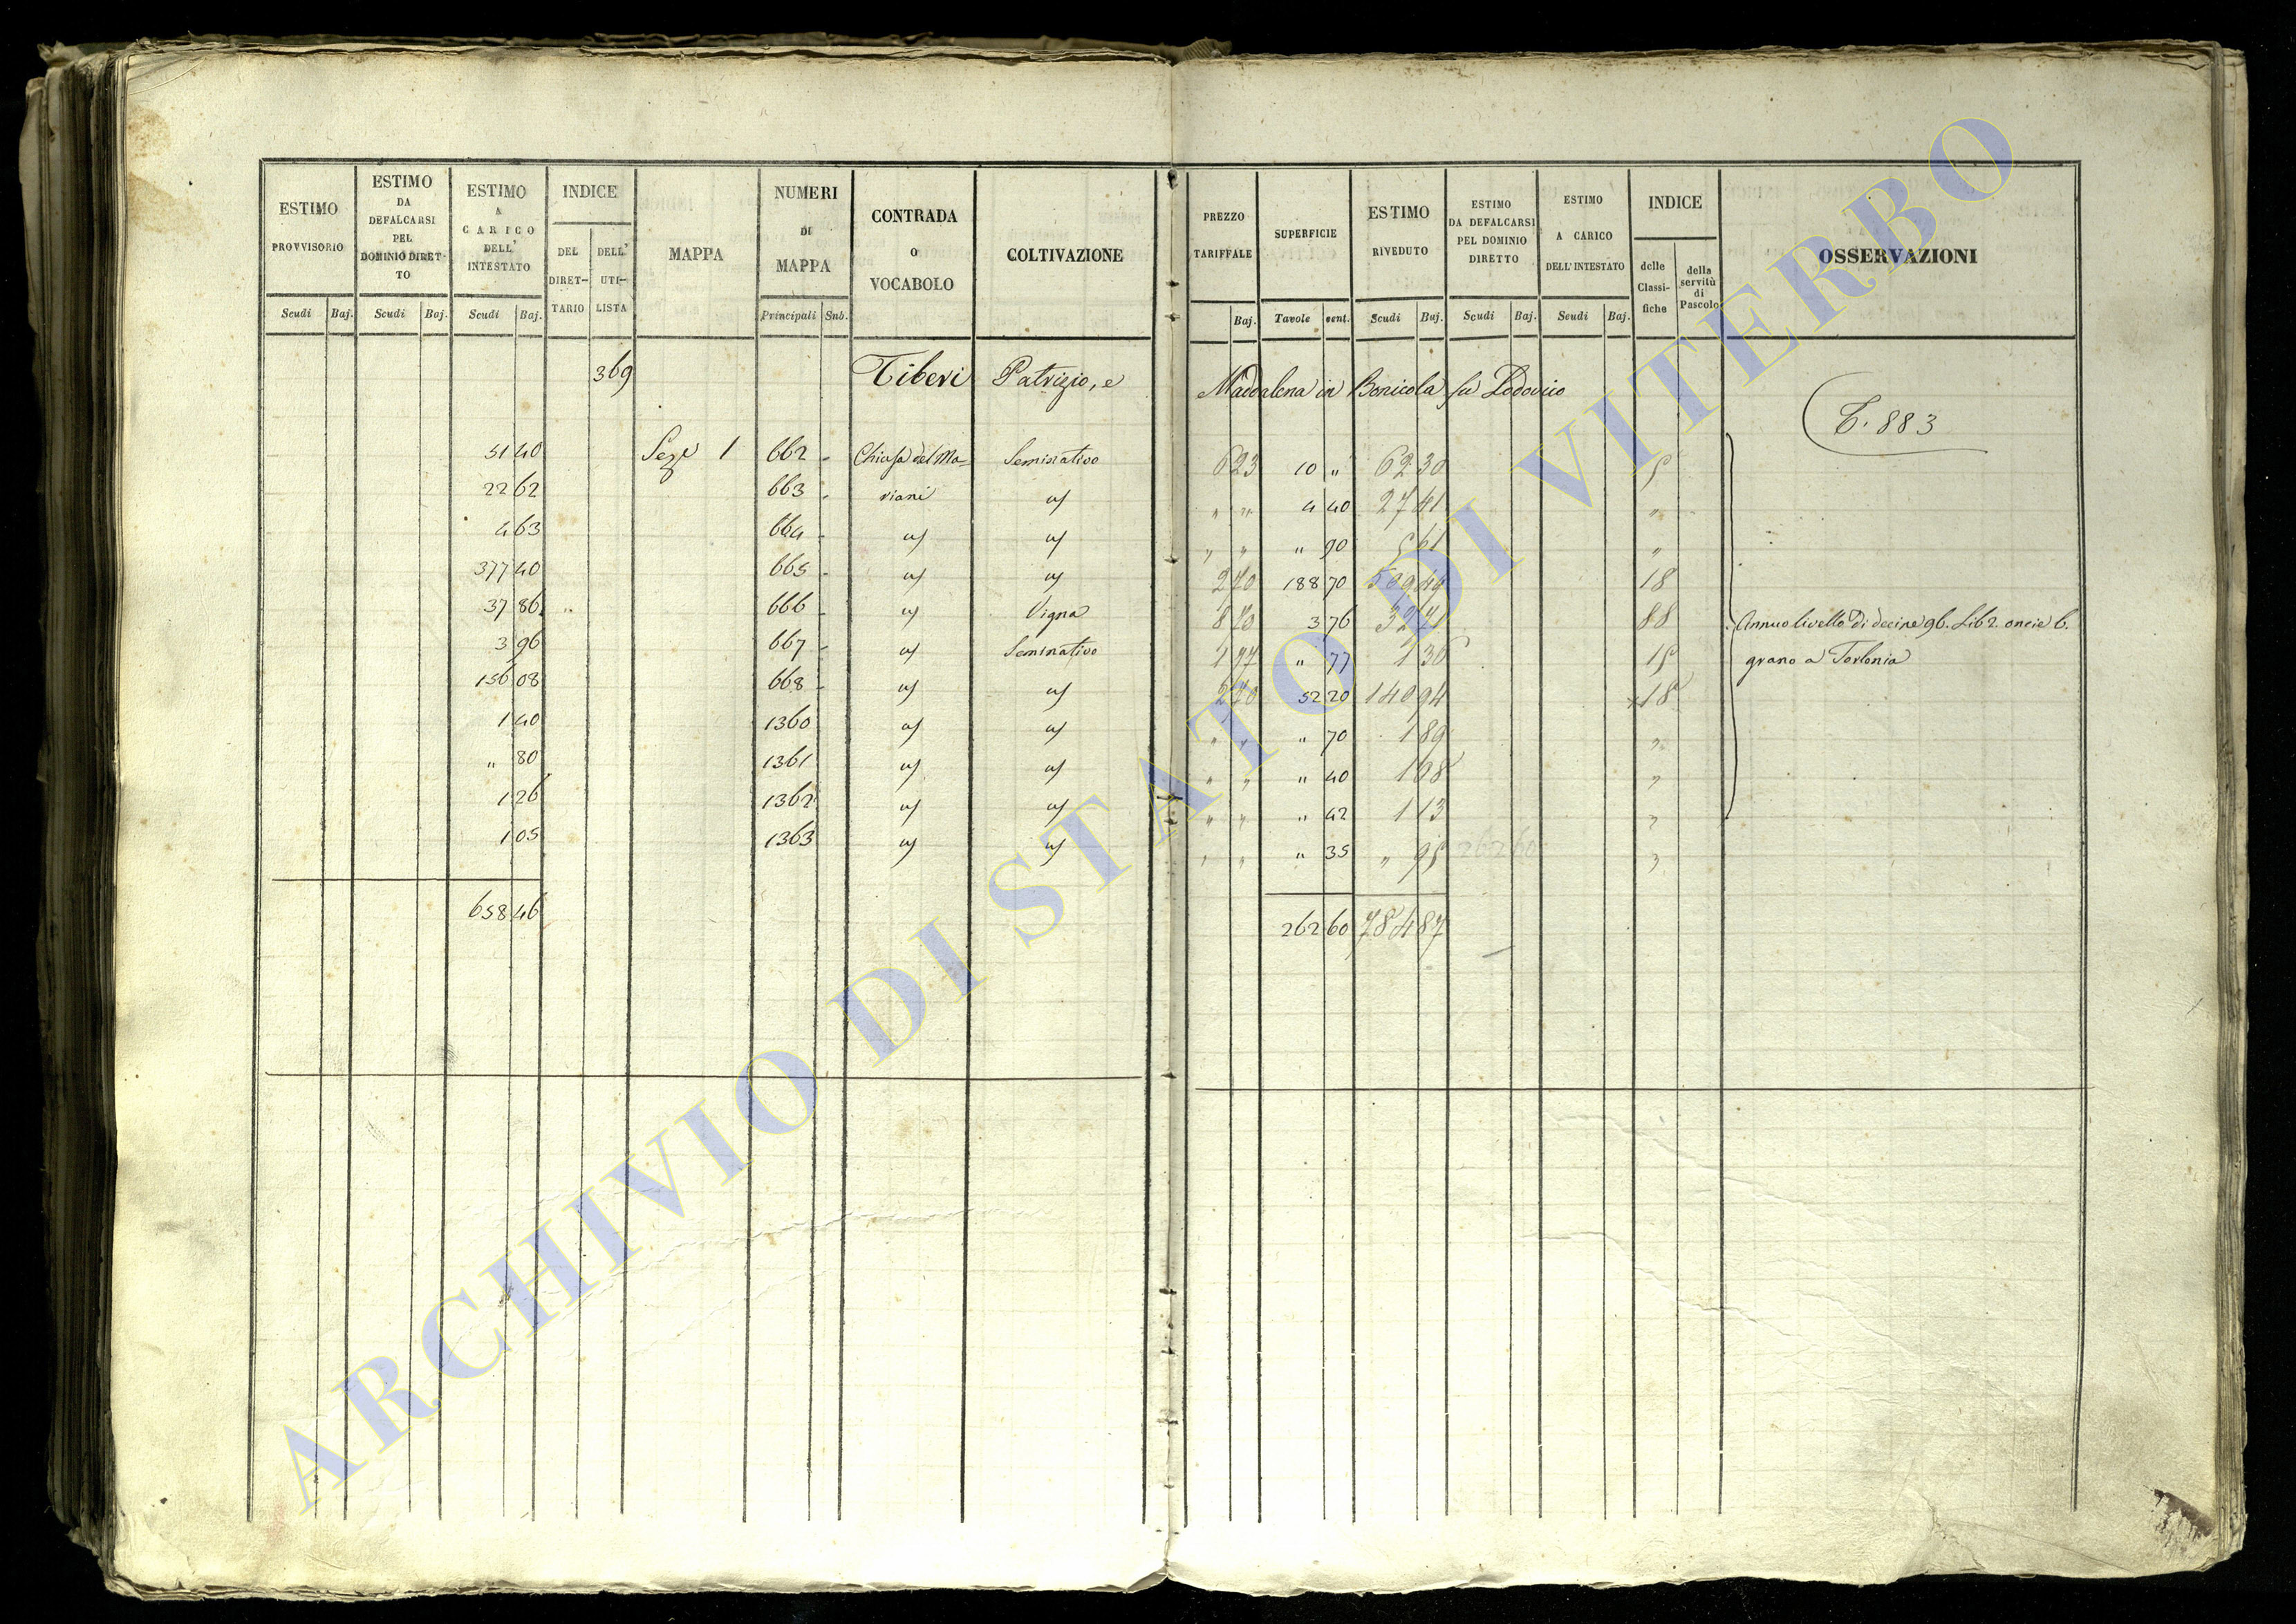 ESTIMO PROVVISORIO Scudi Baj.
ESTIMO DA DEFALCARSI PEL DOMINIO DIRET-TO Scudi Baj.
ESTIMO A CARICO DELL' INTESTATO Scudi Baj.
INDICE DEL DIRET-TARIO DELL' UTI-LISTA
MAPPA
NUMERI DI MAPPA Principali Sub.
CONTRADA O VOCABOLO
COLTIVAZIONE
PREZZO TARIFFALE Baj.
SUPERFICIE Tavole cent.
ESTIMO RIVEDUTO Scudi Baj.
ESTIMO DA DEFALCARSI PEL DOMINIO DIRETTO Scudi Baj.
ESTIMO A CARICO DELL'INTESTATO Scudi Baj.
INDICE delle Classi-fiche della servitù di Pascolo
OSSERVAZIONI
369 Tiberi Patrizio, e Maddalena in Bonicola fu Lodovico
T. 883
51 40 Seze 1 662 Chiusa del Ma- Seminativo 6 23 10 " 62 30 5
22 62 663 riani " " 4 40 27 41 "
4 63 664 " " " 90 5 61 "
377 40 665 2 70 188 70 509 49 18
37 86 666 Vigna 8 70 3 76 32 71 88 Annuo livello di decine 96. Lib 2. oncie 6.
3 96 667 Seminativo 1 97 " 77 1 36 15 grano a Torlonia
156 08 668 2 70 52 20 140 94 18
1 40 1360 " " " 70 1 89 "
" 80 1361 " " " 40 1 08 "
1 26 1362 " " " 42 1 13 "
1 05 1363 " " " 35 " 95 262 60 "
658 46 262 60 784 87
ARCHIVIO DI STATO DI VITERBO